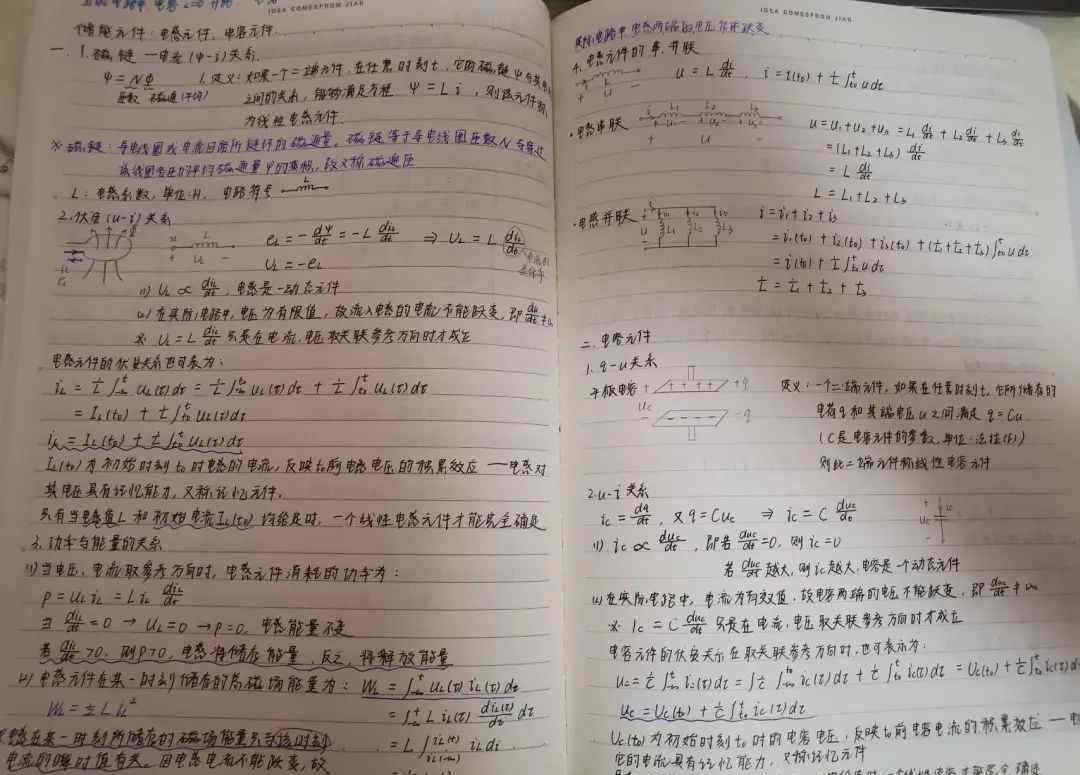 IDEA COMES FROM JIAR
储能元件：电感元件、电容元件
一、1. 磁链—电流(ψ-i)关系
ψ = NΦ 1.定义：如果一个二端元件，在任意时刻t，它的磁链ψ与其电
匝数 磁通(平均) 之间的关系，能够满足方程 ψ = Li，则该元件称
为线性电感元件.
※ 磁链：导电线圈或电流回路所链环的磁通量，磁链等于导电线圈匝数N与穿过
该线圈各匝的平均磁通量φ的乘积，故又称磁通匝
L：电感系数，单位：H， 电路符号 L
2. 伏安(u-i)关系
e_L = -dψ/dt = -L di_L/dt ⇒ u_L = L di_L/dt
u_L = -e_L
(1) u_L ∝ di_L/dt，电感是一动态元件
(2) 在实际电路中，电压为有限值，故流入电感的电流不能跃变，即 di_L/dt ≠ ∞
※ u_L = L di_L/dt 只是在电流、电压取关联参考方向时才成立
电感元件的伏安关系也可表为：
i_L = 1/L ∫_{-∞}^{t} u_L(τ)dτ = 1/L ∫_{-∞}^{t0} u_L(τ)dτ + 1/L ∫_{t0}^{t} u_L(τ)dτ
= I_L(t0) + 1/L ∫_{t0}^{t} u_L(τ)dτ
i_L = I_L(t0) + 1/L ∫_{t0}^{t} u_L(τ)dτ
I_L(t0)为初始时刻t0时电感的电流，反映t0前电感电压的积累效应——电感对
其电压具有记忆能力，又称记忆元件.
只有当电感值L和初始电流I_L(t0)均给定时，一个线性电感元件才能完全确定
3. 功率与能量的关系
(1) 当电压、电流取参考方向时，电感元件消耗的功率为：
p = u_L i_L = L i_L di_L/dt
当 di_L/dt = 0 → u_L = 0 → p = 0，电感能量不变
若 di_L/dt > 0，则p>0，电感将储存能量，反之，将释放能量
(2) 电感元件在某一时刻储存的总磁场能量为： W_L = ∫_{-∞}^{t} u_L(τ) i_L(τ) dτ
W_L = 1/2 L i_L² = ∫_{-∞}^{t} L i_L(τ) di_L(τ)/dτ dτ
电感在某一时刻所储存的磁场能量只与该时刻 = L ∫_{i_L(-∞)}^{i_L(t)} i_L di_L
电流的瞬时值有关，因电感电流不能跃变，故
IDEA COMES FROM JIAR
实际电路中电容两端的电压不能跃变
4. 电感元件的串、并联
u = L di/dt, i = i(t0) + 1/L ∫_{t0}^{t} u dτ
+ u -
·电感串联 i L₁ L₂ L₃ u = u₁ + u₂ + u₃ = L₁ di/dt + L₂ di/dt + L₃ di/dt
+ u - = (L₁ + L₂ + L₃) di/dt
= L di/dt
L = L₁ + L₂ + L₃
·电感并联 i = i₁ + i₂ + i₃
= i₁(t0) + i₂(t0) + i₃(t0) + (1/L₁ + 1/L₂ + 1/L₃) ∫_{t0}^{t} u dτ
= i(t0) + 1/L ∫_{t0}^{t} u dτ
1/L = 1/L₁ + 1/L₂ + 1/L₃
二、电容元件
1. q-u关系
平板电容 + ++++ +q 定义：一个二端元件，如果在任意时刻t，它所储存的
u_C -q 电荷q和其端电压u之间满足 q = Cu
(C是电容元件的参数，单位：法拉(F))
则此二端元件称线性电容元件
2. u-i关系
i_C = dq/dt，又 q = Cu_C ⇒ i_C = C du_C/dt
(1) i_C ∝ du_C/dt，即若 du_C/dt = 0，则 i_C = 0
若 du_C/dt 越大，则i_C越大，电容是一个动态元件
(2) 在实际电路中，电流为有效值，故电容两端的电压不能跃变，即 du_C/dt ≠ ∞
※ i_C = C du_C/dt 只是在电流、电压取关联参考方向时才成立
电容元件的伏安关系在取关联参考方向时，也可表示为：
u_C = 1/C ∫_{-∞}^{t} i_C(τ)dτ = 1/C ∫_{-∞}^{t0} i_C(τ)dτ + 1/C ∫_{t0}^{t} i_C(τ)dτ = U_C(t0) + 1/C ∫_{t0}^{t} i_C(τ)d
u_C = U_C(t0) + 1/C ∫_{t0}^{t} i_C(τ)dτ
U_C(t0)为初始时刻t0时的电容电压，反映t0前电容电流的积累效应——电
它的电流具有记忆能力，又称记忆元件